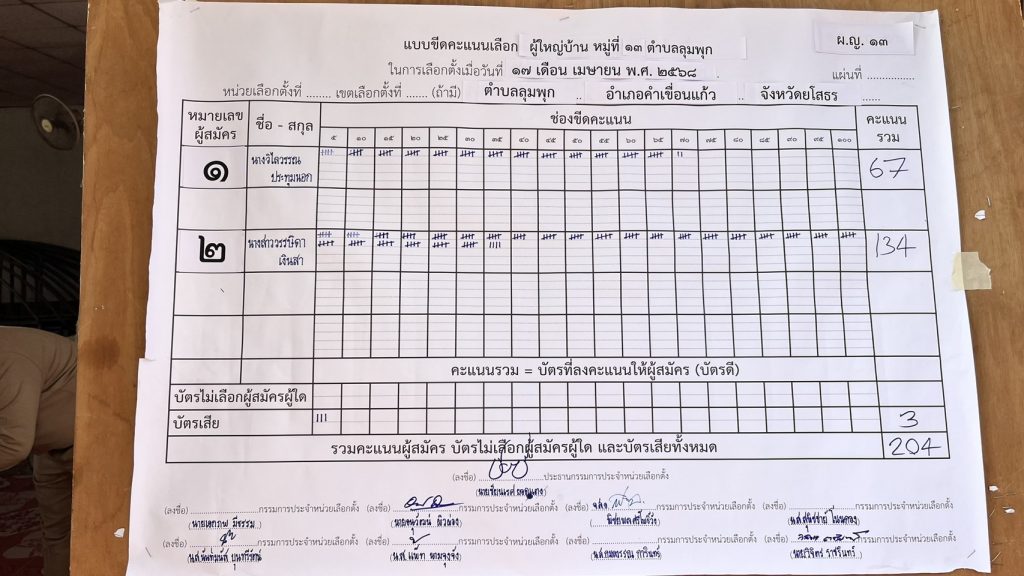 ผ.ญ. ๑๓
แบบขีดคะแนนเลือก ผู้ใหญ่บ้าน หมู่ที่ ๑๓ ตำบลลุมพุก
ในการเลือกตั้งเมื่อวันที่ ๑๗ เดือน เมษายน พ.ศ. ๒๕๖๘ แผ่นที่ ..............
หน่วยเลือกตั้งที่ ....... เขตเลือกตั้งที่ ...... (ถ้ามี) ตำบลลุมพุก .. อำเภอคำเขื่อนแก้ว .. จังหวัดยโสธร ......
หมายเลขผู้สมัคร ชื่อ - สกุล ช่องขีดคะแนน คะแนนรวม
๕ ๑๐ ๑๕ ๒๐ ๒๕ ๓๐ ๓๕ ๔๐ ๔๕ ๕๐ ๕๕ ๖๐ ๖๕ ๗๐ ๗๕ ๘๐ ๘๕ ๙๐ ๙๕ ๑๐๐
๑ นางวิไลวรรณ 67
ประทุมนอก
๒ นางสาววรรษิดา 134
เงินสา
คะแนนรวม = บัตรที่ลงคะแนนให้ผู้สมัคร (บัตรดี)
บัตรไม่เลือกผู้สมัครผู้ใด
บัตรเสีย 3
รวมคะแนนผู้สมัคร บัตรไม่เลือกผู้สมัครผู้ใด และบัตรเสียทั้งหมด 204
(ลงชื่อ) ประธานกรรมการประจำหน่วยเลือกตั้ง
(ลงชื่อ) กรรมการประจำหน่วยเลือกตั้ง (ลงชื่อ) กรรมการประจำหน่วยเลือกตั้ง (ลงชื่อ) กรรมการประจำหน่วยเลือกตั้ง (ลงชื่อ) กรรมการประจำหน่วยเลือกตั้ง
(ลงชื่อ) กรรมการประจำหน่วยเลือกตั้ง (ลงชื่อ) กรรมการประจำหน่วยเลือกตั้ง (ลงชื่อ) กรรมการประจำหน่วยเลือกตั้ง (ลงชื่อ) กรรมการประจำหน่วยเลือกตั้ง